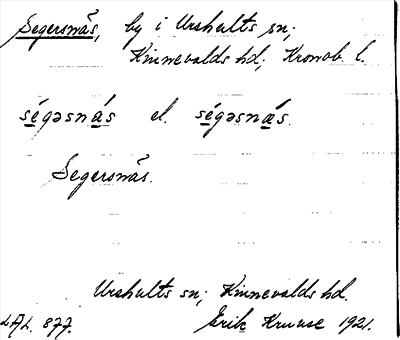 Segersnäs, by i Urshults sn;
Kinnevalds hd; Kronob. l.
ségəsnás el. ségəsnǽs.
Segersnäs.
Urshults sn; Kinnevalds hd.
LAL. 877. Erik Kruuse 1921.